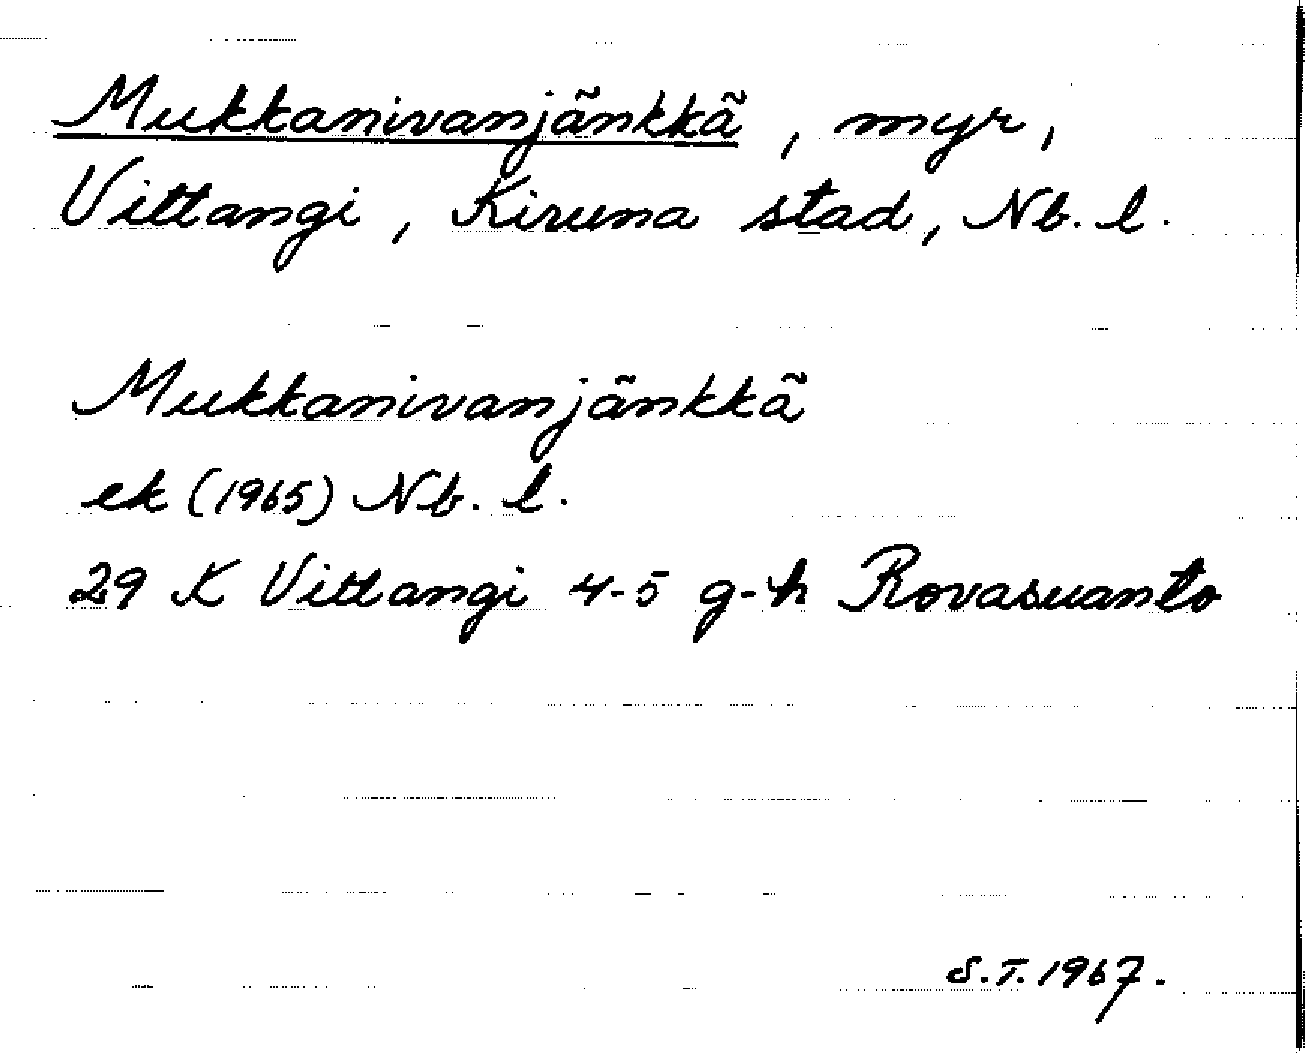 Mukkanivanjänkkä, myr,
Vittangi, Kiruna stad, Nb. l.
Mukkanivanjänkkä
ek (1965) Nb. l.
29 K Vittangi 4-5 g-h Rovasuanto
S.T. 1967.